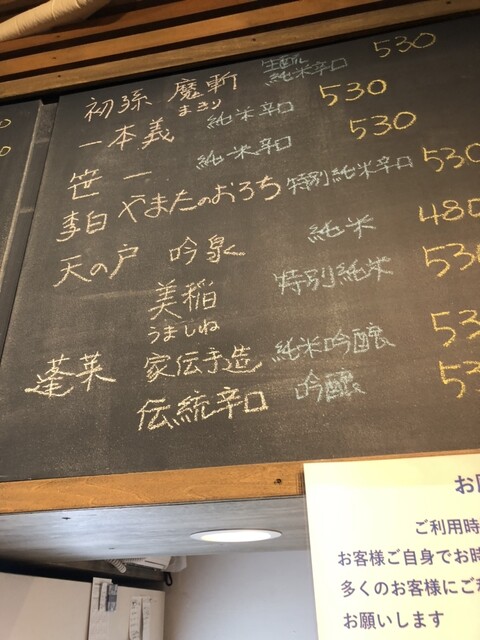 初孫 魔斬 生酛純米辛口 530
まきり
一本義 純米辛口 530
笹一 純米辛口 530
李白 やまたのおろち 特別純米辛口 530
天の戸 吟泉 純米 480
美稲 特別純米 530
うましね
蓬莱 家伝手造 純米吟醸 53
伝統辛口 吟醸 53
お
ご利用時
お客様ご自身でお時
多くのお客様にご
お願いします